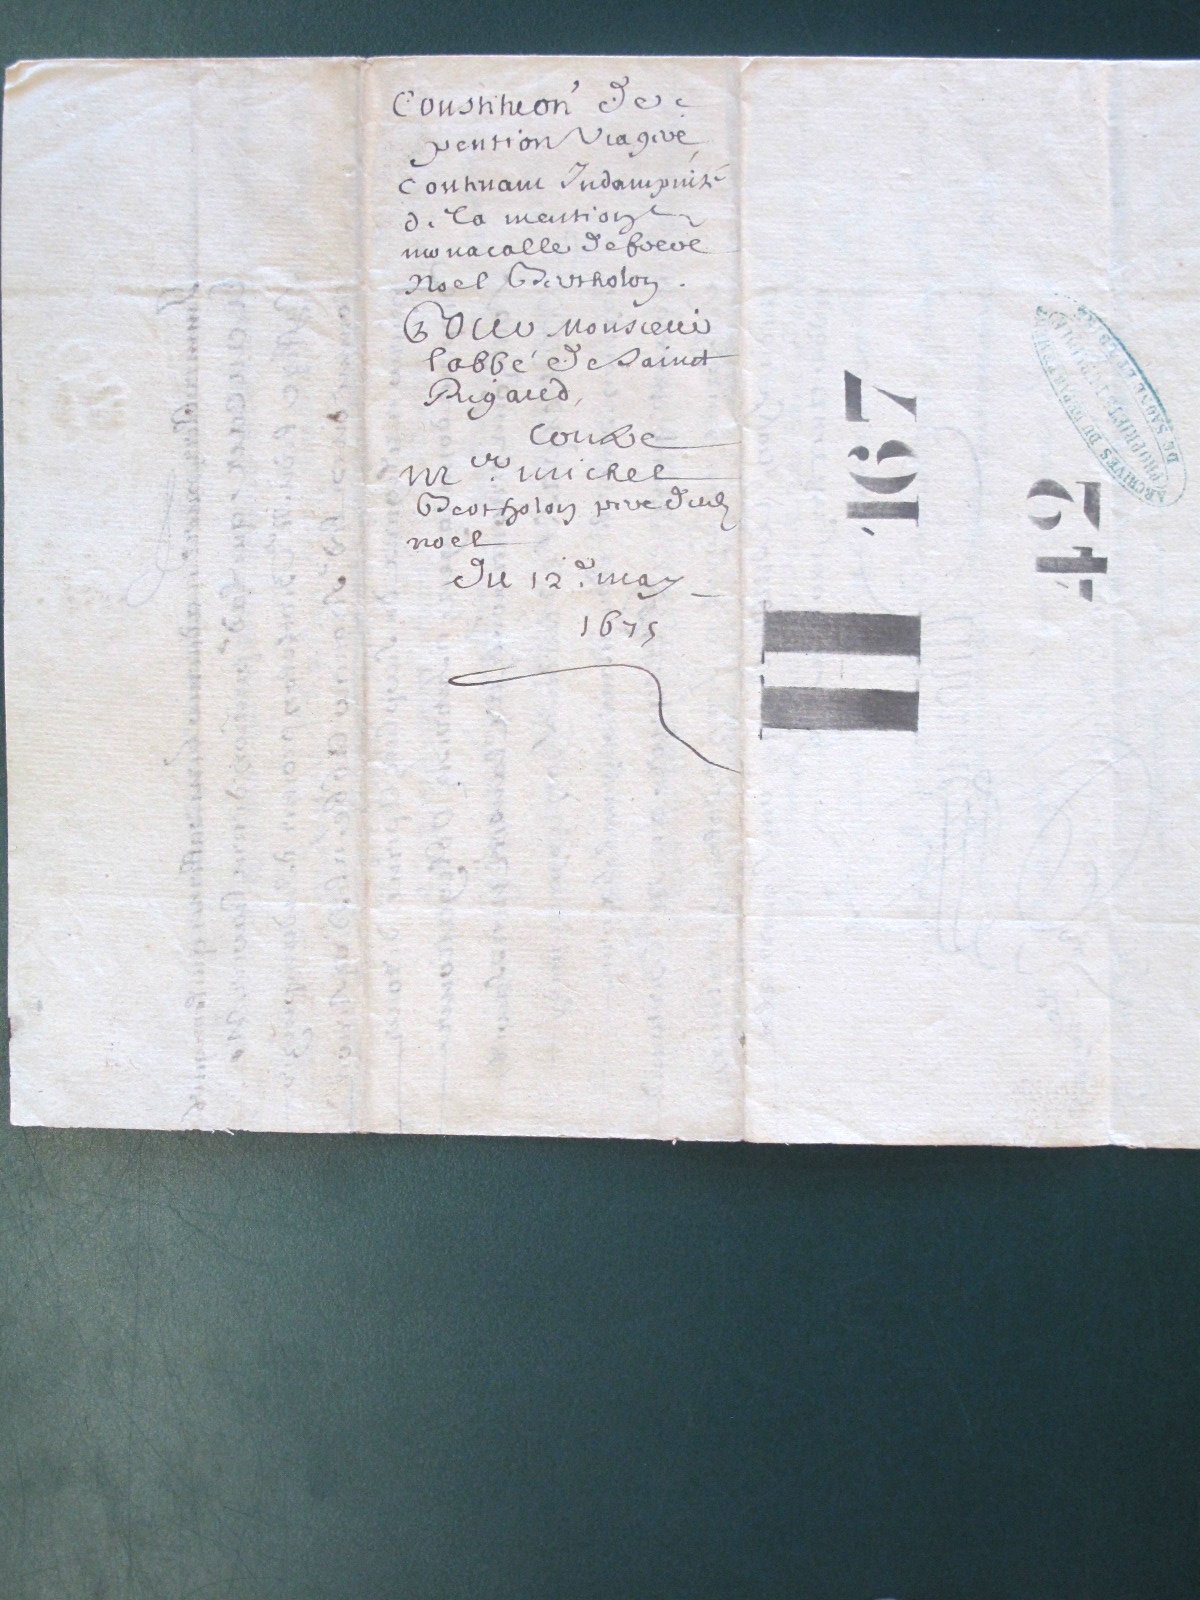 Constit͞eon de
pention Viagere
Contenant Indampnité
de la mention
monacalle de frere
Noel Bertholon.
Pour Monsieur
l'abbé de Sainct
Rigaud,
Contre
Mre michel
Bertholon pere dud
noel
du 12e may
1675
H 167
42
ARCHIVES DU DÉPARTt
PROPRIÉTÉ PUBLIQUE
DE SAONE ET LOIRE